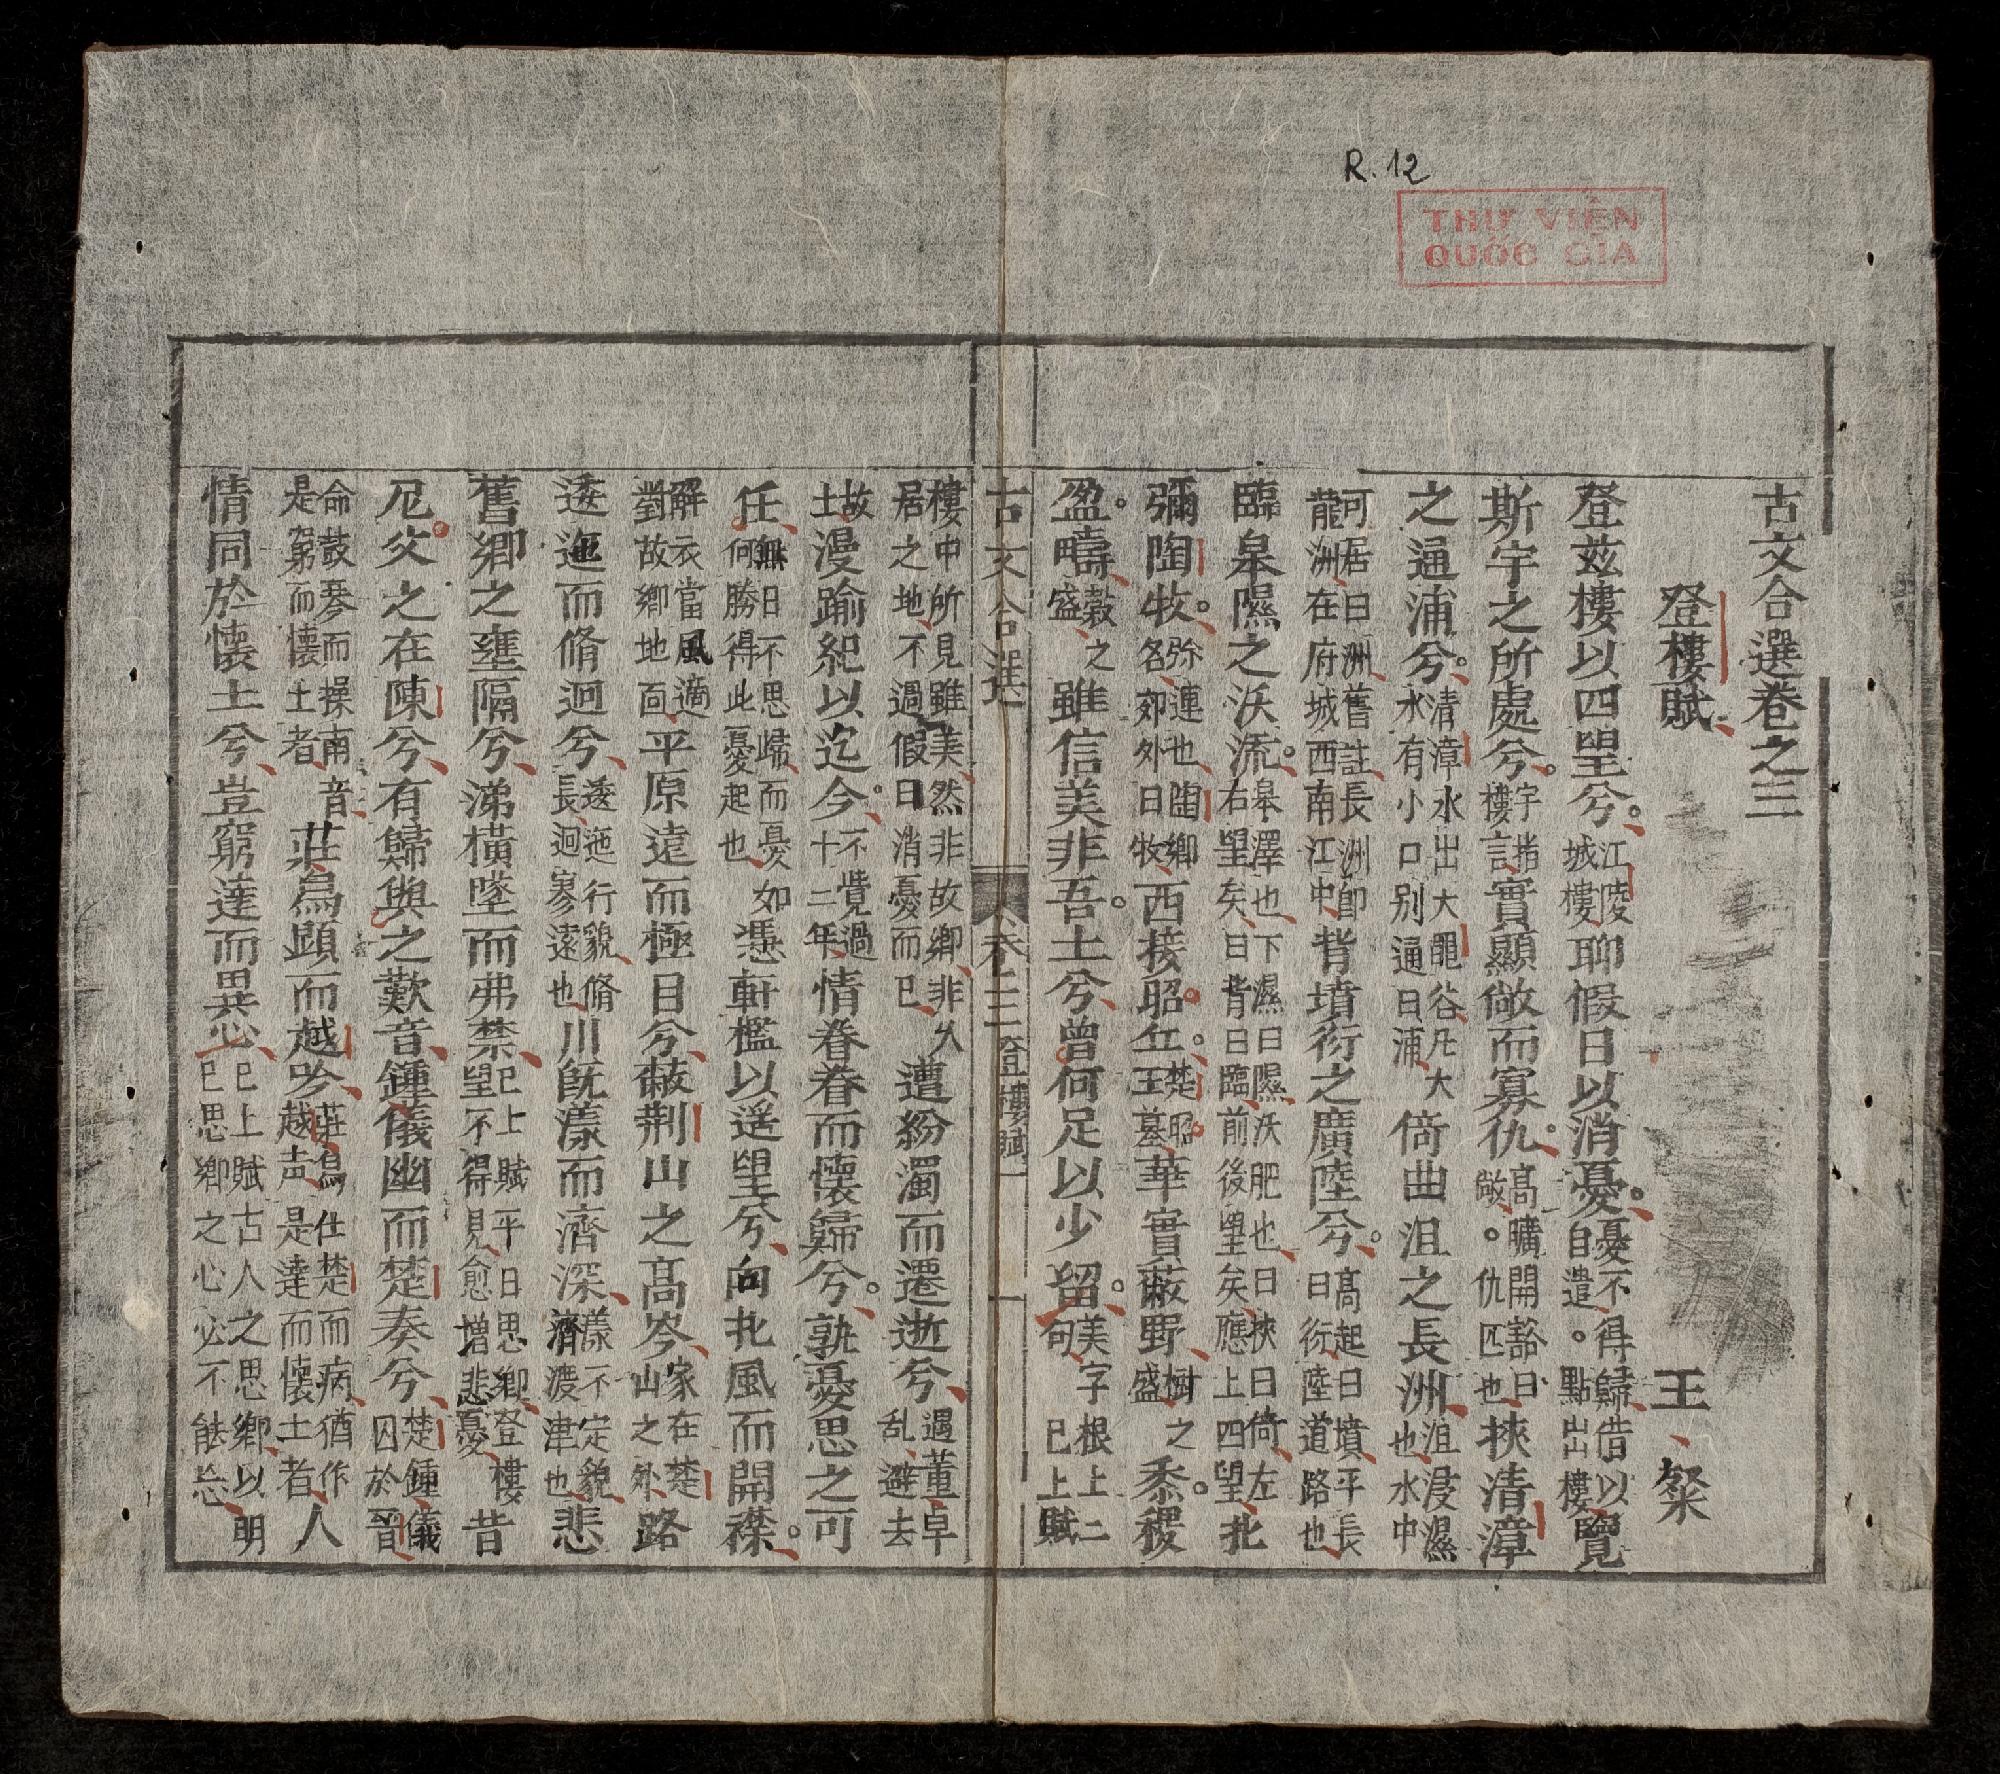 R.12
THƯ VIỆN
QUỐC GIA
古文合選卷之三
登樓賦 王粲
登茲樓以四望兮江陵城樓聊假日以消憂憂不得歸借以自遣點出樓覽
斯宇之所處兮宇指樓言實顯敞而寡仇高曠開豁曰敞仇匹也挾清漳
之通浦兮清漳水出大黽谷凡大水有小口別通曰浦倚曲沮之長洲沮浸濕也水中
可居曰洲舊註長洲即龍洲在府城西南江中背墳衍之廣陸兮高起曰墳平長曰衍陸道路也
臨皋隰之沃流皋澤也下濕曰隰沃肥也曰挾曰倚左右望矣曰背曰臨前後望矣應上四望北
彌陶牧弥連也陶鄉名郊外曰牧西接昭丘楚昭王墓華實蔽野樹之盛黍稷
盈疇穀之盛雖信美非吾土兮曾何足以少留美字根上二句已上賦
古文合選 卷三 登樓賦 一
樓中所見雖美然非故鄉非久居之地不過假日消憂而已遭紛濁而遷逝兮遇董卓乱避去
故土漫踰紀以迄今不覺過十二年情眷眷而懷歸兮孰憂思之可
任無日不思歸而憂如何勝得此憂起也憑軒檻以遥望兮向北風而開襟
解衣當風適對故鄉地面平原遠而極目兮蔽荆山之高岑家在楚山之外路
逶迤而脩迥兮逶迤行貌脩長迥寥遠也川旣漾而濟深漾不定貌濟渡津也悲
舊鄉之壅隔兮涕橫墜而弗禁已上賦平日思鄉登樓望不得見愈增悲憂昔
尼父之在陳兮有歸與之歎音鍾儀幽而楚奏兮楚鍾儀囚於晉
命鼓琴而操南音是窮而懷土者莊舄顯而越吟莊舄仕楚而病猶作越声是達而懷土者人
情同於懷土兮豈窮達而異心已上賦古人之思鄉以明已思鄉之心必不能忘